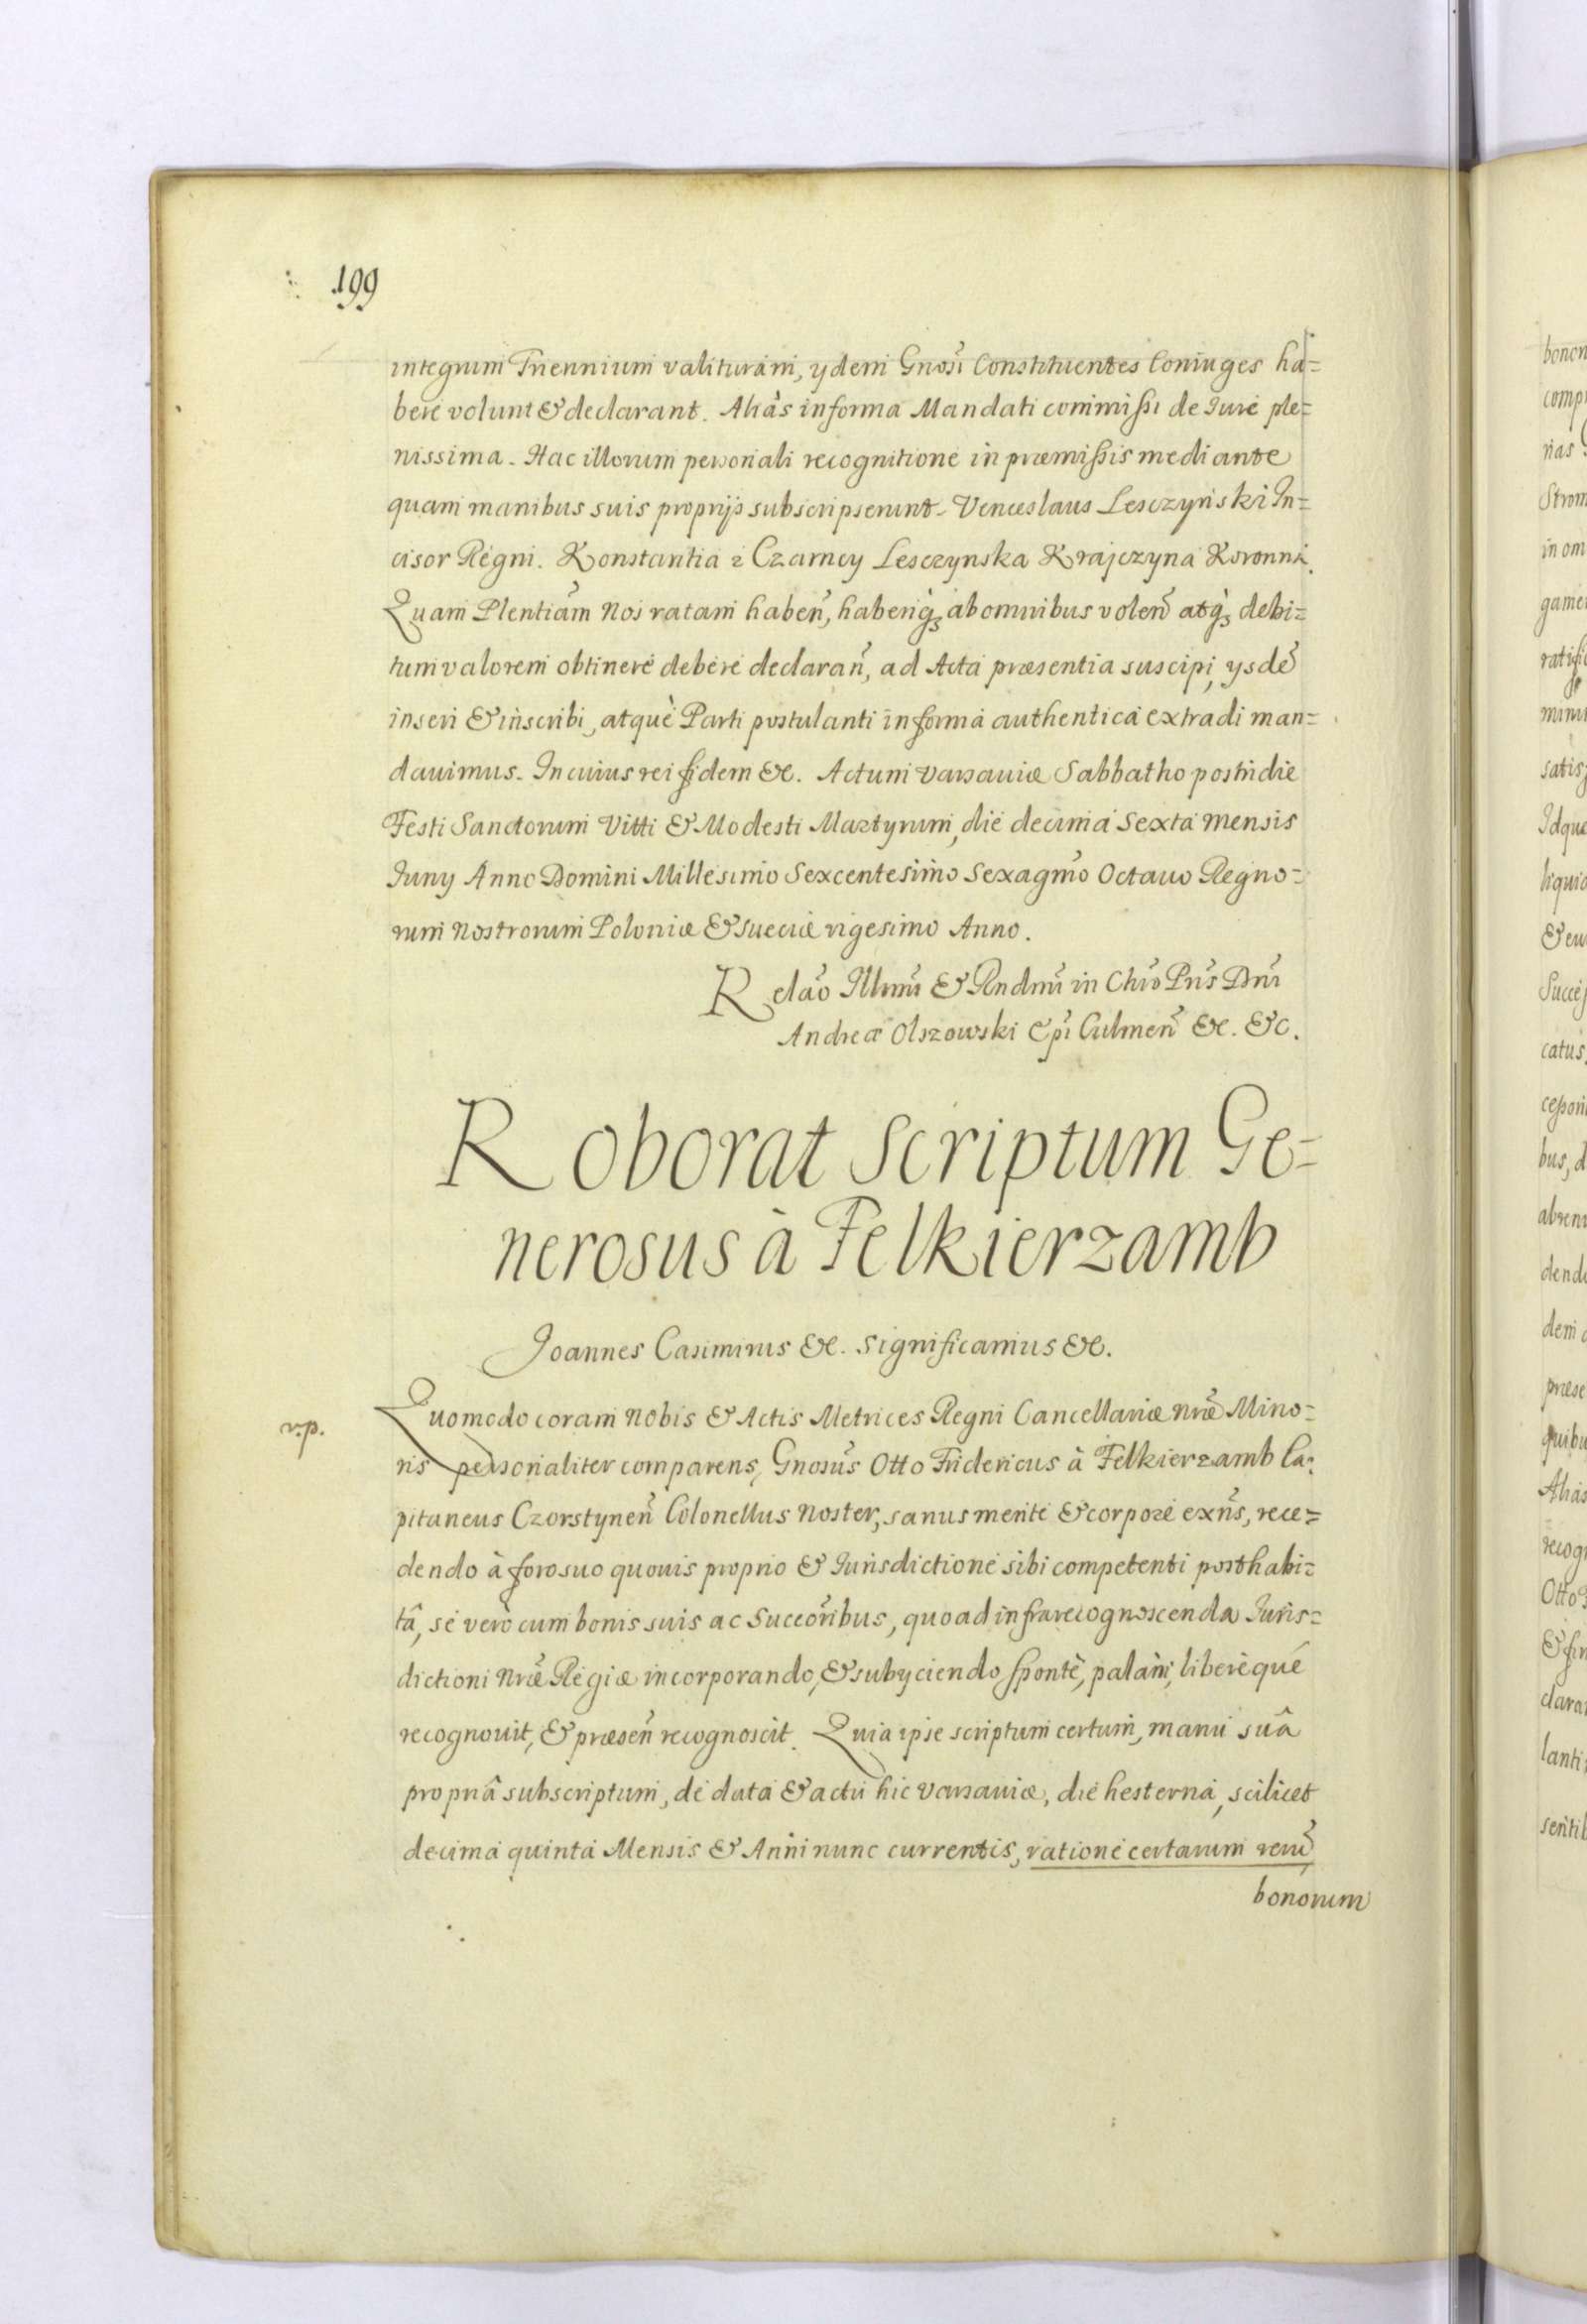 199
integrum Triennium valituram, ydem Gnosi Constituentes Coniuges ha=
bere volunt & declarant. Aliàs in forma Mandati commissi de Iure ple=
nissima. Hac illorum personali recognitione in præmissis mediante
quam manibus suis proprijs subscripserunt. Venceslaus Lesczyński In=
cisor Regni. Konstantia z Czarncy Lesczynska Krajczyna Koronna.
Quam Plentiam Nos ratam haben, habenq₃ ab omnibus volen atq₃ debi=
tum valorem obtinere debere declaran, ad Acta præsentia suscipi, ysde
inseri & inscribi, atquè Parti postulanti in forma authentica extradi man=
dauimus. In cuius rei fidem &c. Actum Varsauiæ Sabbatho postridie
Festi Sanctorum Vitti & Modesti Martyrum, die decima Sexta Mensis
Iuny Anno Domini Millesimo Sexcentesimo Sexagmo Octauo Regno=
rum Nostrorum Poloniæ & Sueciæ vigesimo Anno.
Relao Illmi & Rndmi in Chro Pris Dni
Andreæ Olszowski Epi Culmen &c. &c.
Roborat Scriptum Ge=
nerosus à Felkierzamb
Joannes Casimirus &c. Significamus &c.
v.p.
Quomodo coram Nobis & Actis Metrices Regni Cancellariæ nræ Mino=
ris personaliter comparens, Gnosus Otto Fridericus à Felkierzamb Ca=
pitaneus Czorstynen Colonellus Noster, sanus mente & corpore exns, rece=
dendo à foro suo quouis proprio & Iurisdictione sibi competenti posthabi=
tâ, se verò cum bonis suis ac Succoribus, quoad infra recognoscenda Iuris=
dictioni Nræ Regiæ incorporando, & subyciendo spontè, palàm, liberèque
recognouit, & præsen recognoscit. Quia ipse scriptum certum, manu suâ
propriâ subscriptum, de data & actu hic Varsauiæ, die hesterna, scilicet
decima quinta Mensis & Anni nunc currentis, ratione certarum reru
bonorum